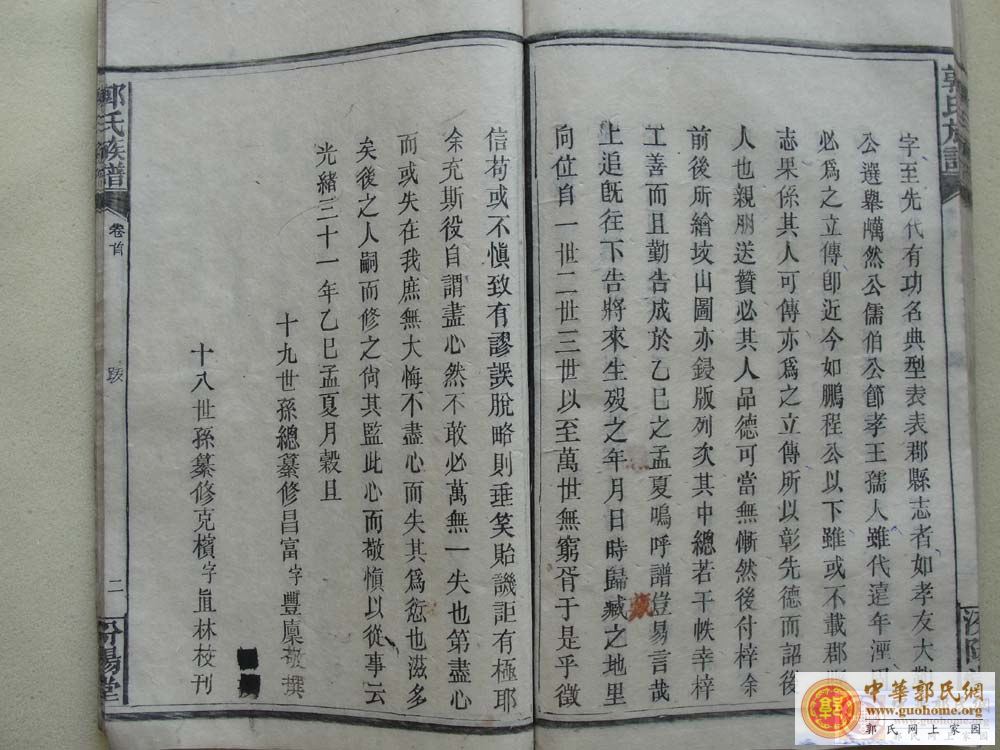 字至先代有功名典型表表郡縣志者如孝友大
公選舉巍然公儒伯公節孝王孺人雖代遠年湮
必為之立傳即近今如鵬程公以下雖或不載郡
志果係其人可傳亦為之立傳所以彰先德而詔後
人也親朋送贊必其人品德可當無慚然後付梓余
前後所繪坟山圖亦鋟版列次其中總若干帙幸梓
工善而且勤告成於乙巳之孟夏嗚呼譜豈易言哉
上追既往下告將來生歿之年月日時歸藏之地里
向位自一世二世三世以至萬世無窮胥于是乎徵
信苟或不慎致有謬誤脫略則垂笑貽譏詎有極耶
余充斯役自謂盡心然不敢必萬無一失也第盡心
而或失在我庶無大悔不盡心而失其為愆也滋多
矣後之人嗣而修之尙其監此心而敬慎以從事云
光緒三十一年乙巳孟夏月穀旦
十九世孫總纂修昌富字豐廩敬撰
十八世孫纂修克檳字眞林校刊
郭氏族譜
卷首
跋
二
汾陽堂
郭氏族譜
汾陽
中華郭氏網
www.guohome.org
郭氏網上家園